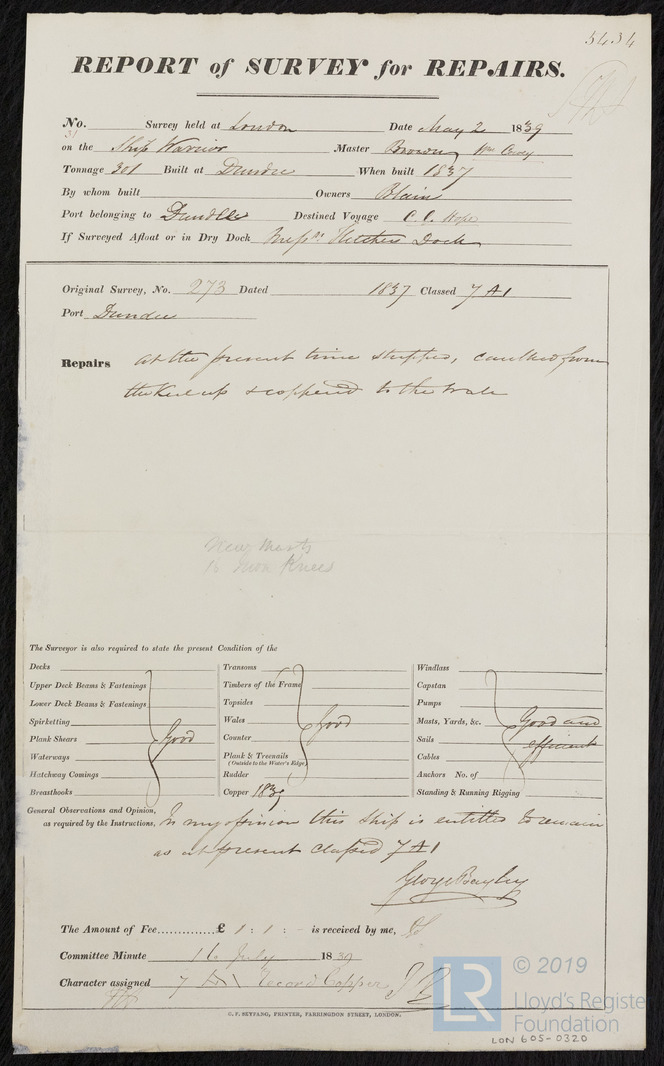 5434
REPORT of SURVEY for REPAIRS.
No. Survey held at London Date May 2 1839
on the Ship Warrior Master Brown
Tonnage 301 Built at Dundee When built 1837
By whom built Owners Blain
Port belonging to Dundee Destined Voyage C. G. Hope
If Surveyed Afloat or in Dry Dock Messrs. Fletchers Dock
Original Survey, No. 273 Dated 1837 Classed 7 A1
Port Dundee
Repairs at the present time stripped, caulked from
the Keel up & coppered to the Wale
New Masts
Iron Knees
The Surveyor is also required to state the present Condition of the
Decks Transoms Windlass
Upper Deck Beams & Fastenings Timbers of the Frame Capstan
Lower Deck Beams & Fastenings Topsides Pumps
Spirketting Wales Masts, Yards, &c. Good and
Plank Shears Good Counter Good Sails efficient
Waterways Plank & Treenails (Outside to the Water's Edge) Cables
Hatchway Comings Rudder Anchors No. of
Breasthooks Copper 1839 Standing & Running Rigging
General Observations and Opinion, In my opinion this Ship is entitled to remain
as required by the Instructions, as at present classed 7 A1
George Bayley
The Amount of Fee............£ 1 : 1 : - is received by me,
Committee Minute 16 July 1839
Character assigned 7 A1 Record Coppered
C. F. SEYFANG, PRINTER, FARRINGDON STREET, LONDON.
LR
© 2019
Lloyd's Register
Foundation
LON 605-0320